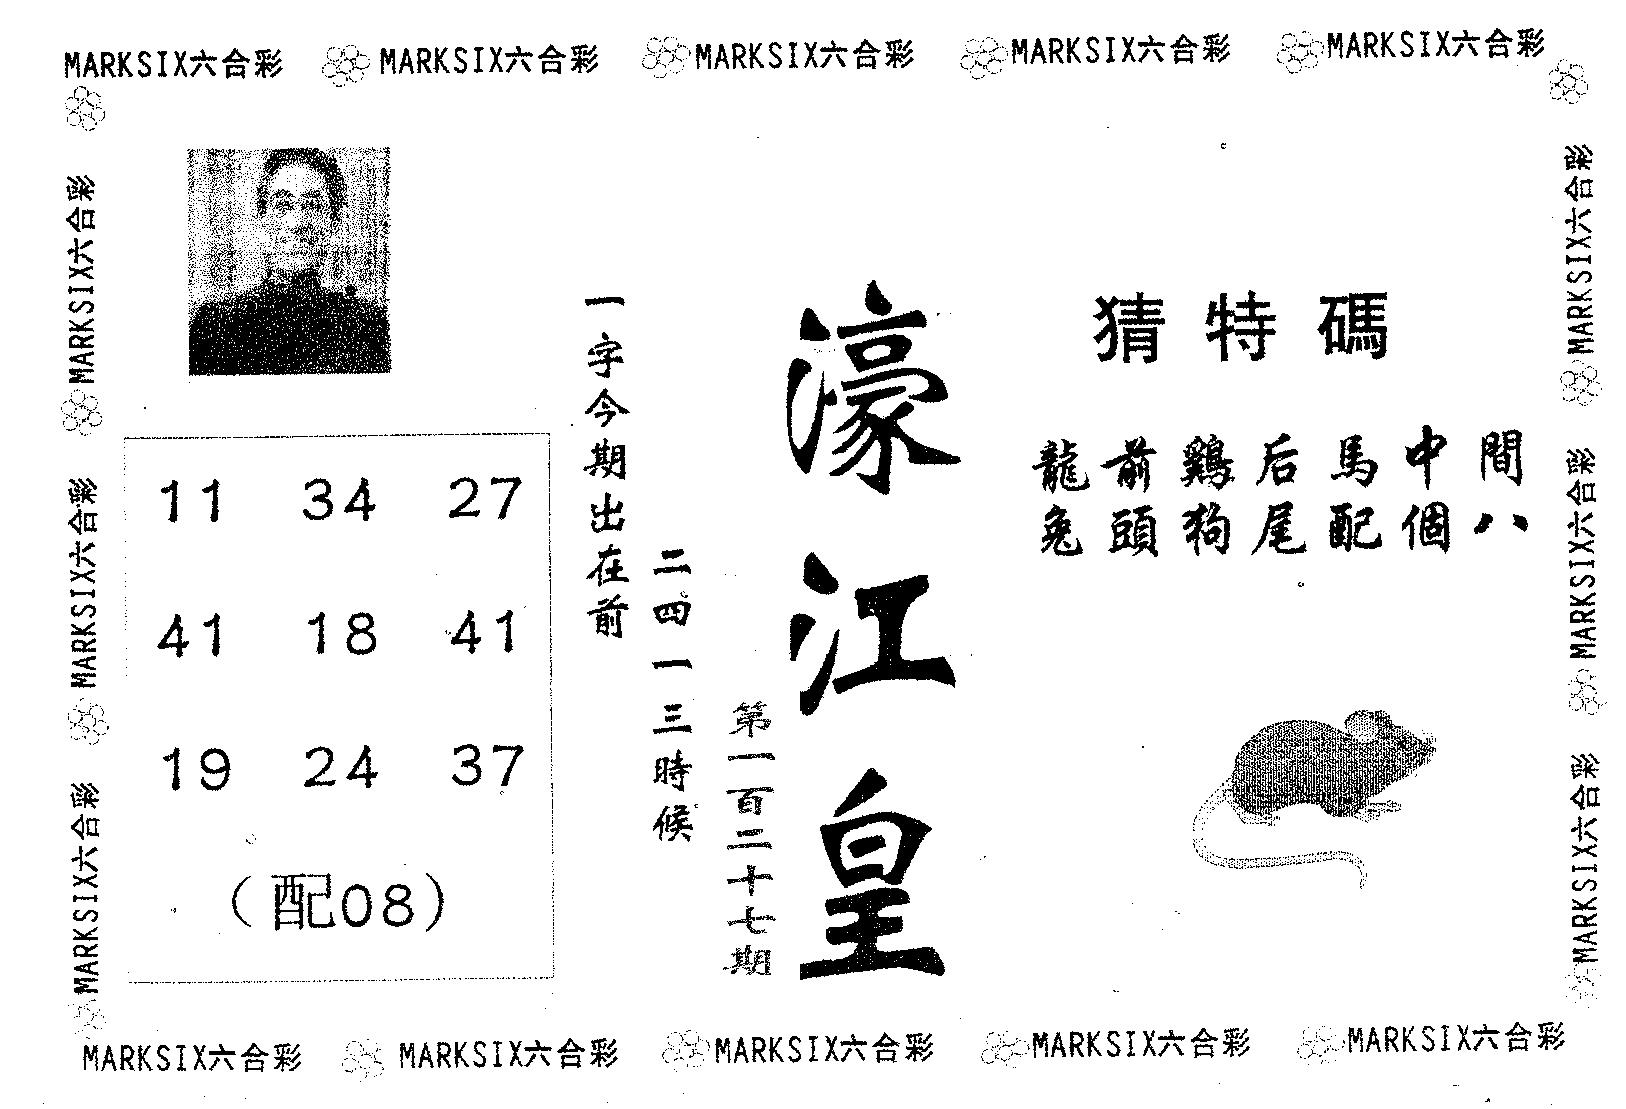 MARKSIX六合彩 MARKSIX六合彩 MARKSIX六合彩 MARKSIX六合彩 MARKSIX六合彩
MARKSIX六合彩
MARKSIX六合彩
MARKSIX六合彩
11 34 27
41 18 41
19 24 37
(配08)
一字今期出在前
二四一三時候
第一百二十七期
濠江皇
猜特碼
龍前鷄后馬中間
兔頭狗尾配個八
MARKSIX六合彩
MARKSIX六合彩
MARKSIX六合彩
MARKSIX六合彩 MARKSIX六合彩 MARKSIX六合彩 MARKSIX六合彩 MARKSIX六合彩